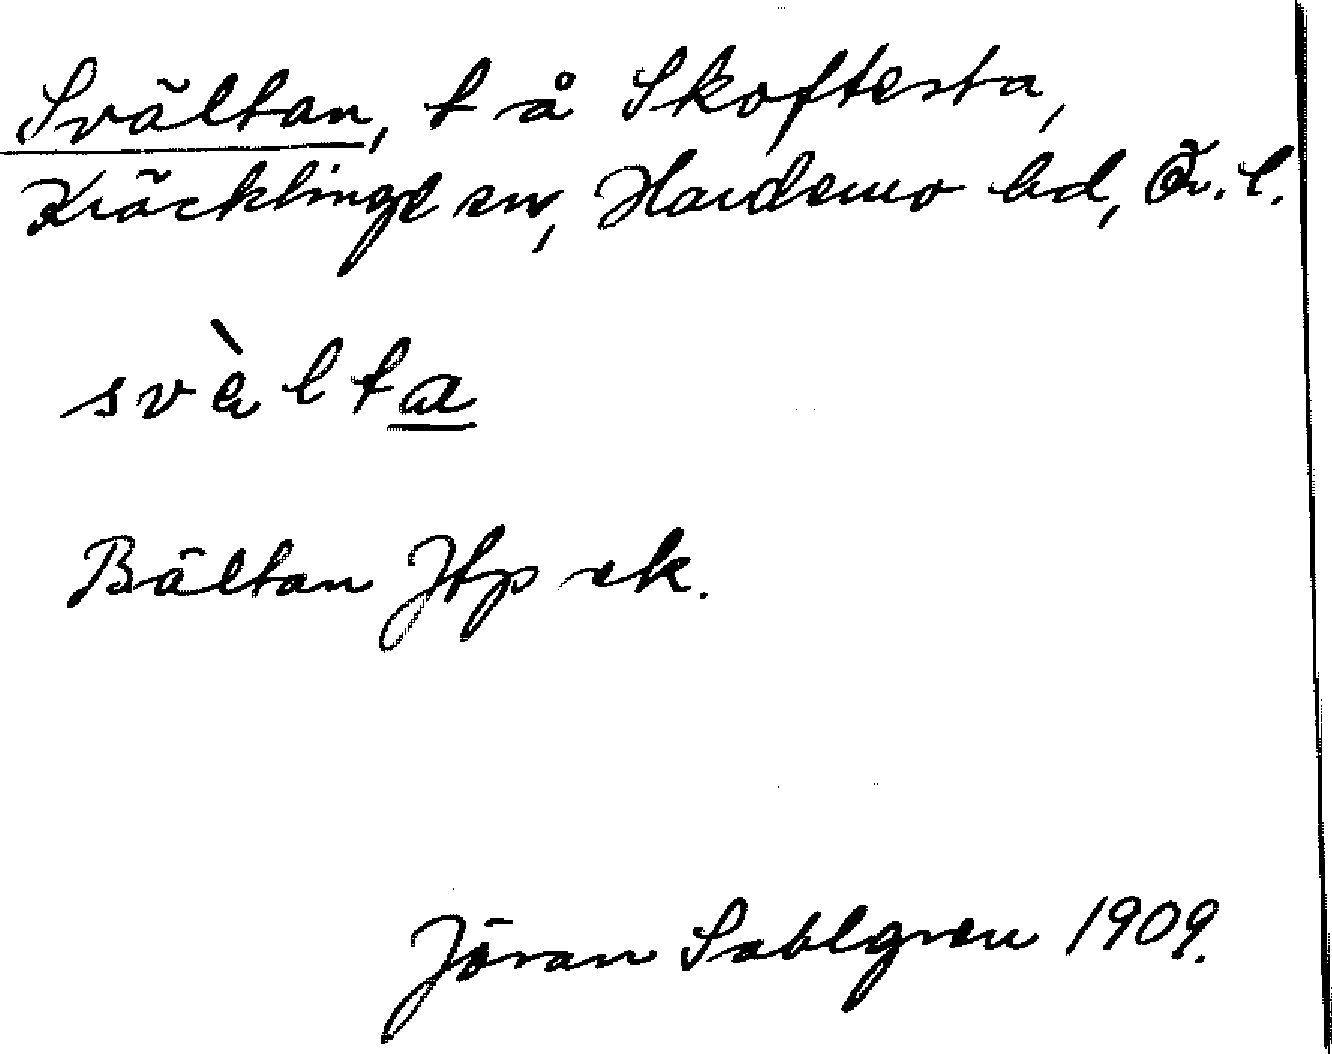 Svältan, t å Skoftesta,
Kräcklinge sn, Hardemo hd, Ör. l.
svὲlta
Bältan Jtp ek.
Jöran Sahlgren 1909.